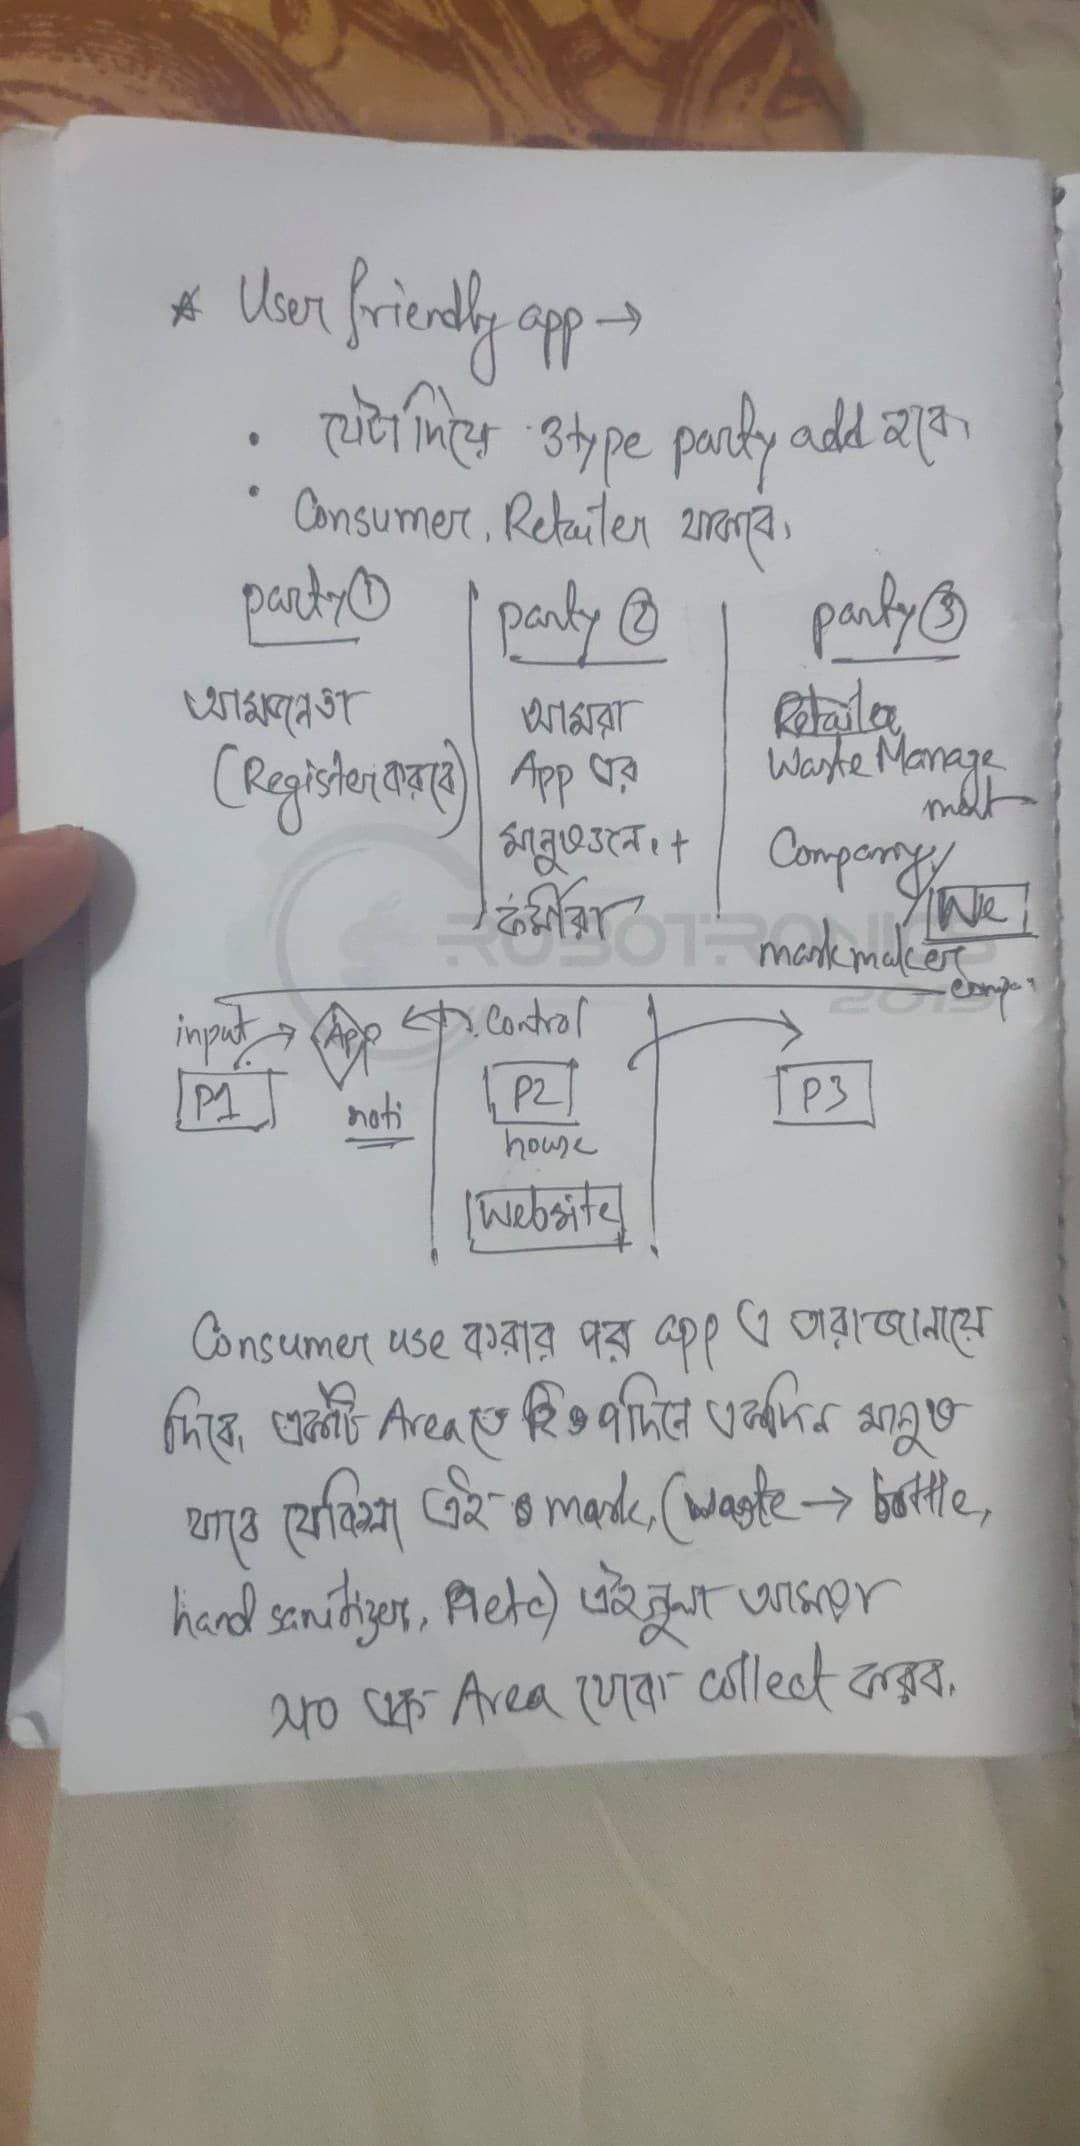 * User friendly app →
• যেটা দিয়ে 3 type party add হবে।
• Consumer, Retailer থাকবে।
party ①
party ②
party ③
আমজনতা
(Register করবে)
আমরা
App এর
+
কর্মীরা
Waste Manage
ment
Company/
We
mask maker
ROBOTRONICS
2018
input → App ↔ Control
P1
noti
P2
house
Website
P3
Consumer use করার পর app এ তারা জানায়ে
দিবে, একটি Area তে ৭দিনে একদিন মানুষ
যাবে এই mask, (waste → bottle,
hand sanitizer, etc) এইগুলা আমরা
এক Area থেকে collect করব।